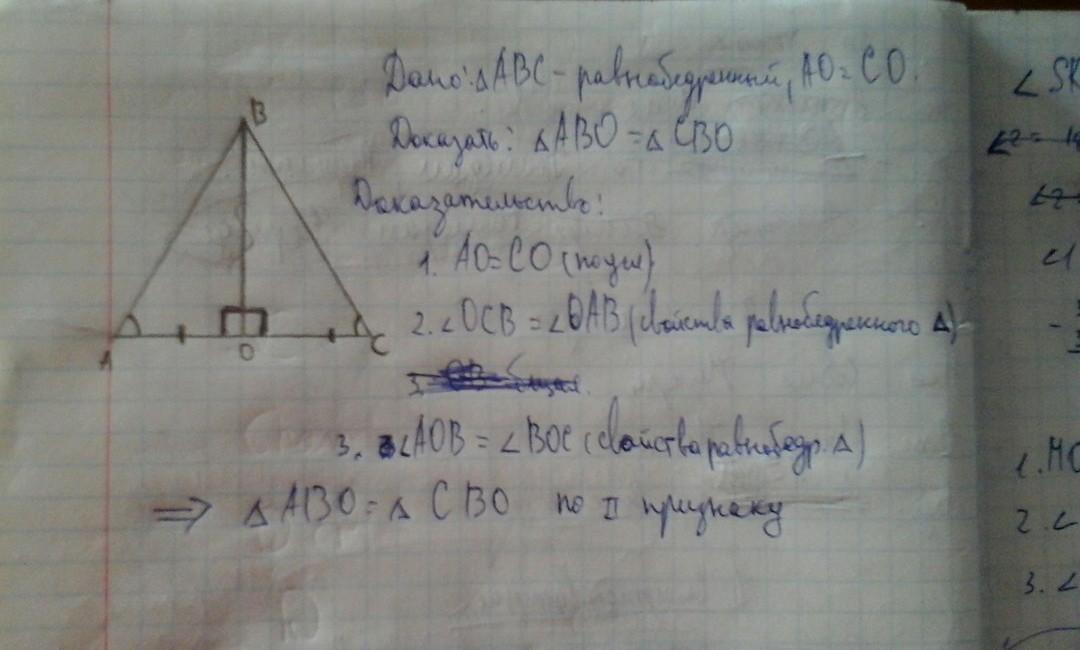 Дано: △ABC - равнобедренный, AO = CO.
Доказать: △ABO = △CBO
Доказательство:
1. AO = CO (по усл)
2. ∠OCB = ∠OAB (свойства равнобедренного △)
3. ∠AOB = ∠BOC (свойства равнобедр. △)
⇒ △ABO = △CBO по II признаку
B
A
O
C
∠SK
1. MO
2. ∠
3. ∠